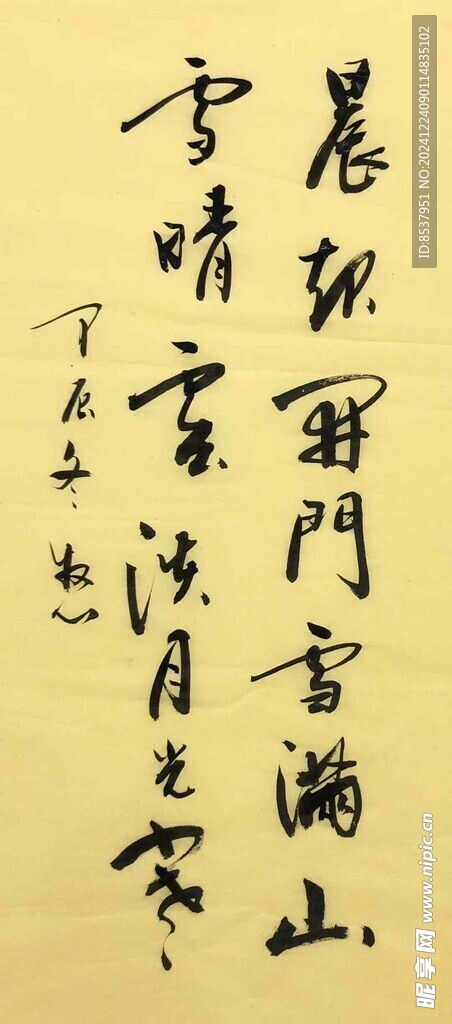 晨起開門雪滿山
雪晴雲淡月光寒
甲辰冬
ID:8537951 NO:20241224090114835102
昵享网 www.nipic.cn